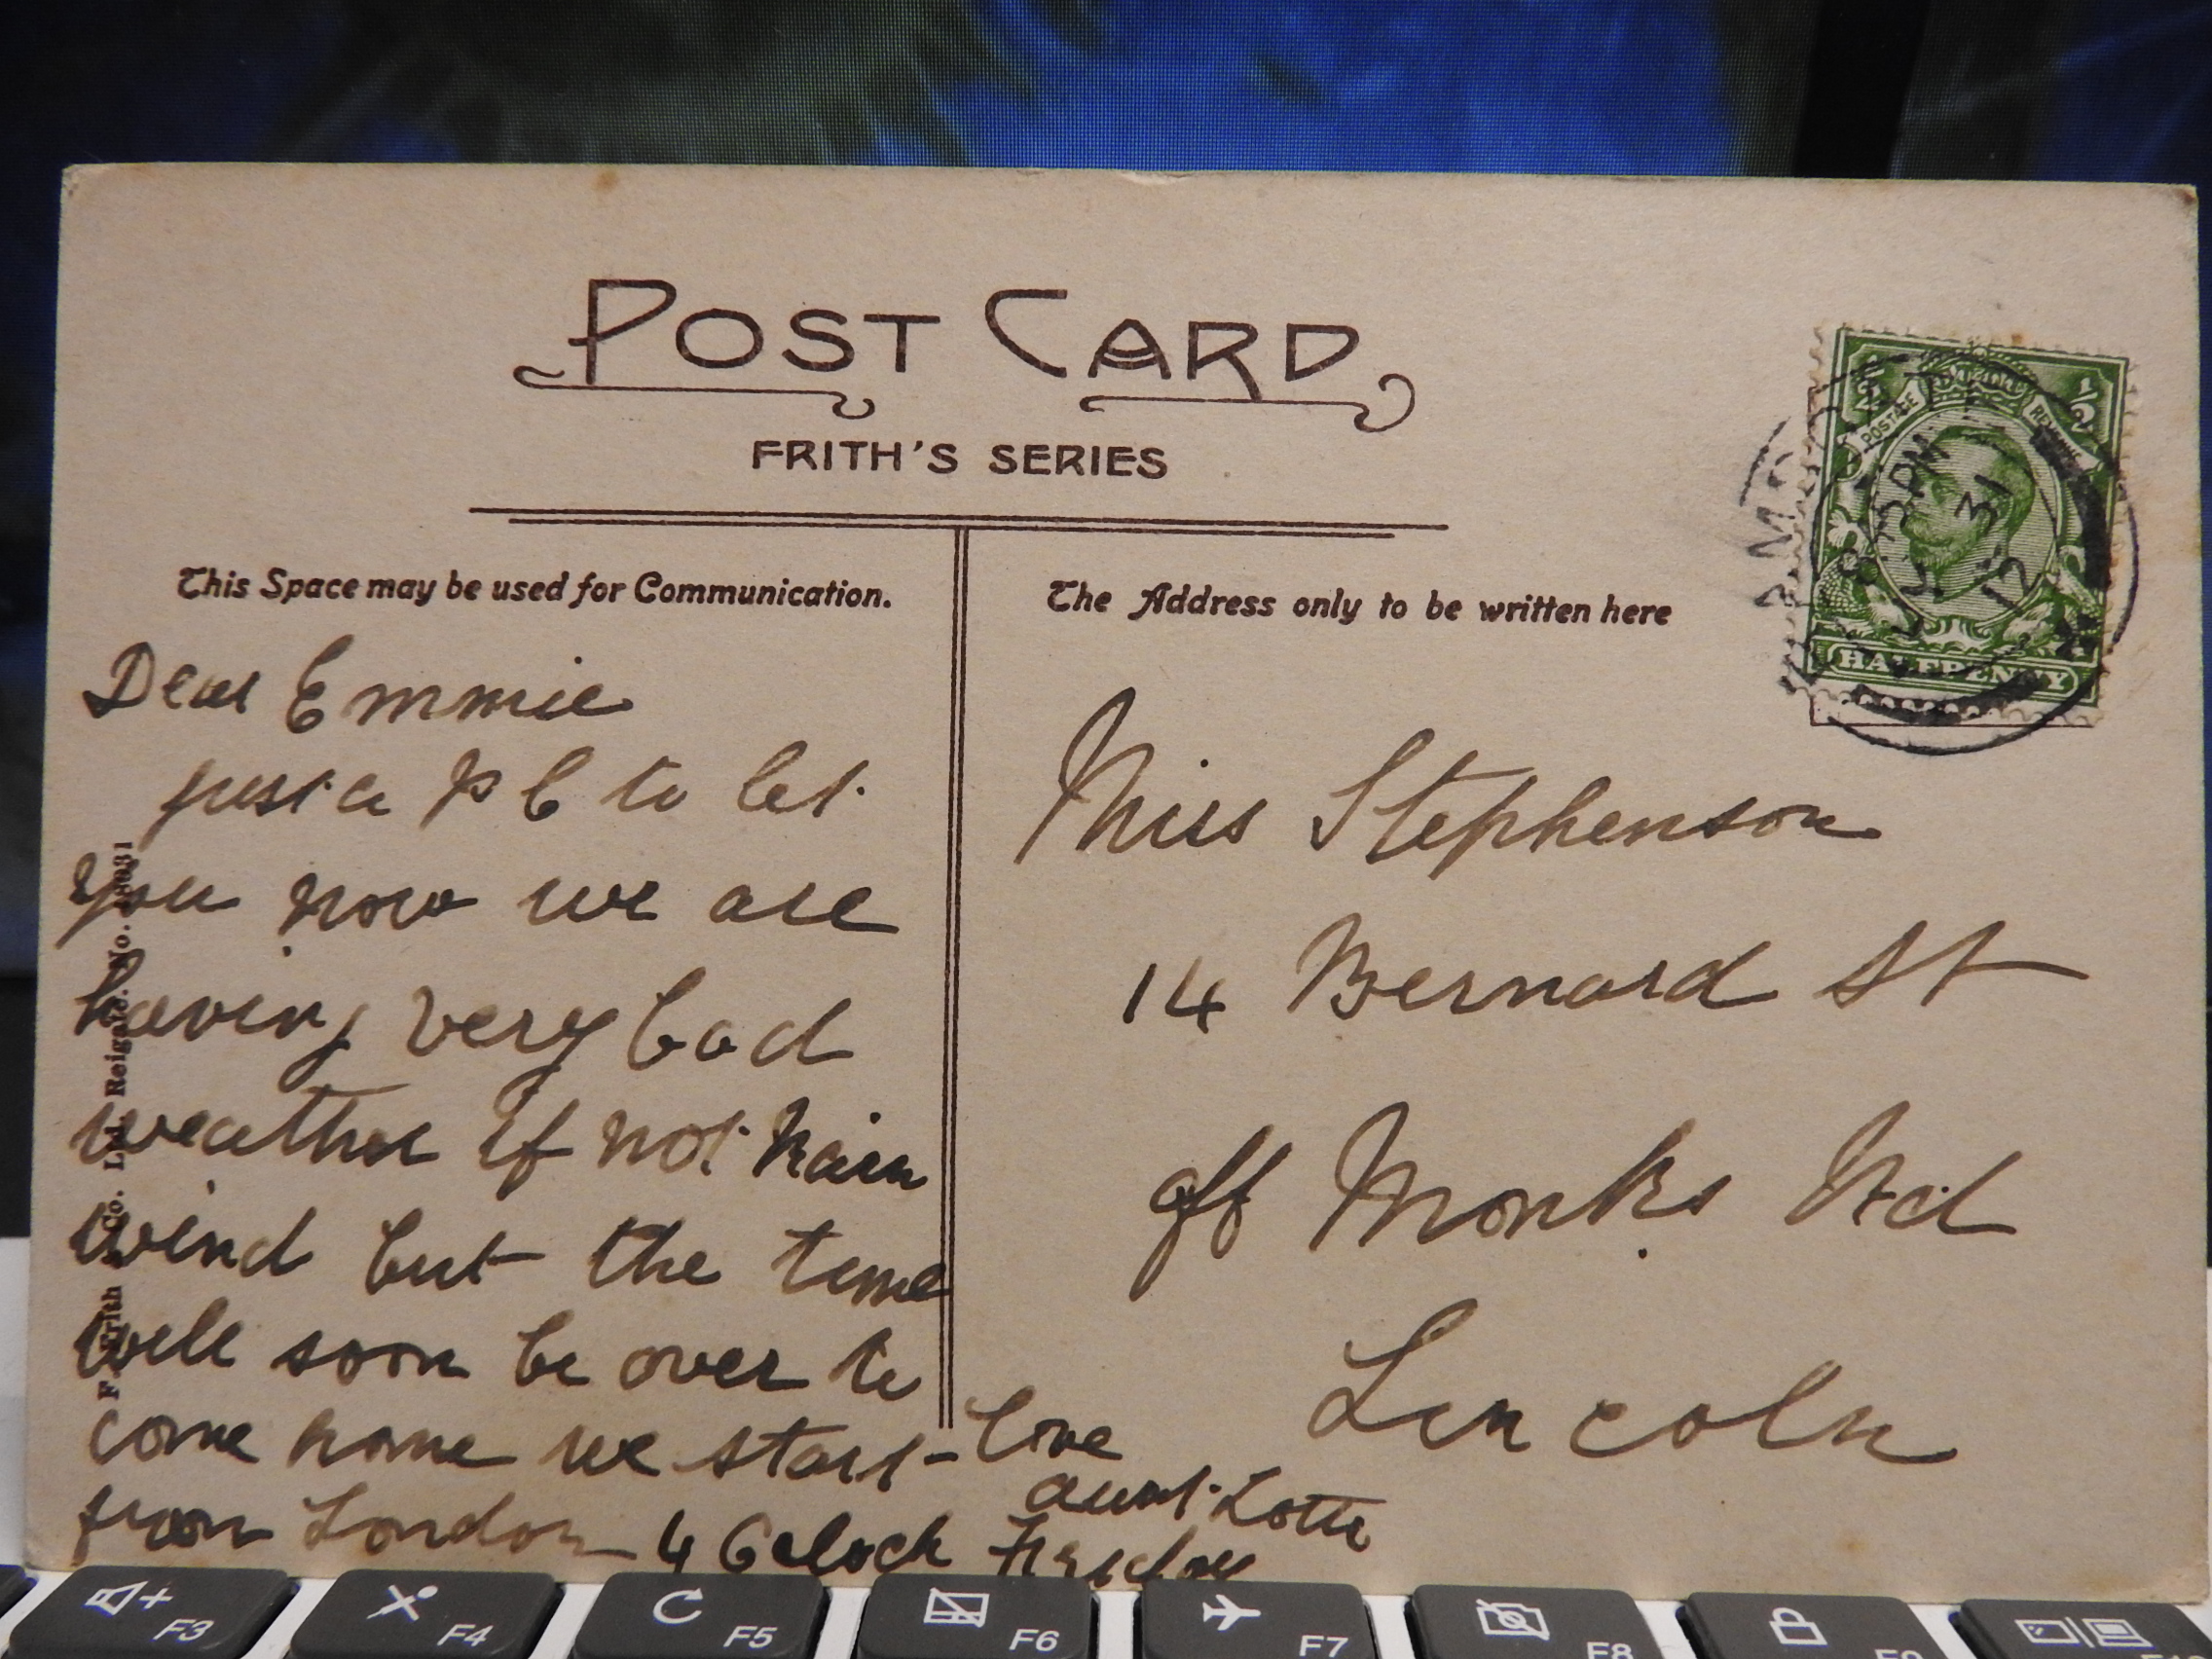 POST CARD
FRITH'S SERIES
This Space may be used for Communication.
The Address only to be written here
POSTAGE
REVENUE
1/2
HALFPENNY
PM
31
12
Dear Emmie
just a P C to let
you now we are
having very bad
weather if not Rain
wind but the time
will soon be over to
come home we start
from London 4 Oclock Friday
Love
aunt Lotte
Miss Stephenson
14 Bernard St
off Monks Rd
Lincoln
F. Frith & Co. Ltd. Reigate. No.
F3
F4
F5
F6
F7
F8
F9